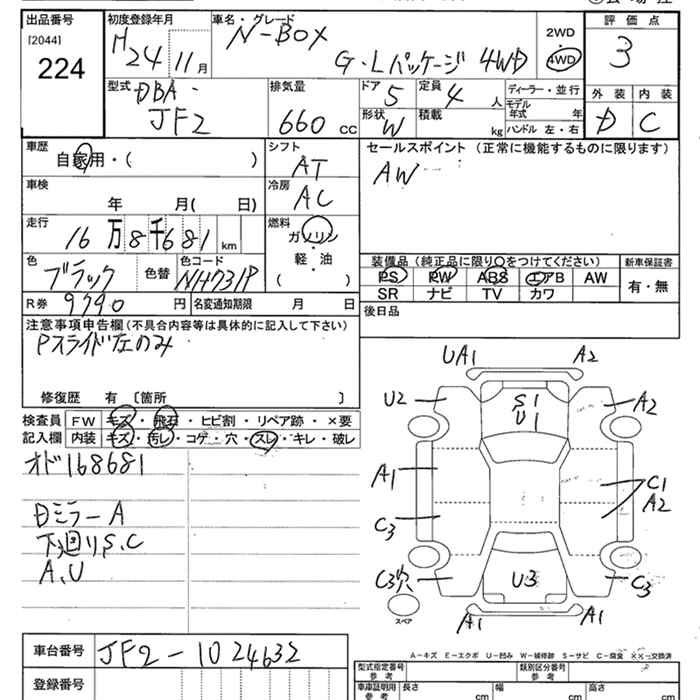 出品番号
[2044]
224
初度登録年月
H24 11月
車名・グレード
N-BOX
G・Lパッケージ 4WD
2WD
4WD
評価点
3
外装 内装
D C
型式
DBA-
JF2
排気量
660 cc
ドア 5
形状 W
定員 4 人
積載 kg
ディーラー・並行
モデル年式 年
ハンドル 左・右
車歴
自家用・( )
シフト
AT
セールスポイント(正常に機能するものに限ります)
AW
車検
年 月( 日)
冷房
AC
走行
16万8千681km
燃料
ガソリン
軽・油
( )
色
ブラック
色替
色コード
NH731P
装備品(純正品に限り○をつけてください)
PS PW ABS エアB AW
SR ナビ TV カワ
新車保証書
有・無
R券 9790 円
名変通知期限 月 日
後日品
注意事項申告欄(不具合内容等は具体的に記入して下さい)
Pスライド左のみ
修復歴 有 〔箇所 〕
検査員記入欄
FW キズ・飛石・ヒビ割・リペア跡・×要
内装 キズ・汚レ・コゲ・穴・スレ・キレ・破レ
オド168681
日ミラーA
下廻りS.C
A.U
UA1 A2
U2 S1 U1 A2
A1 C1 A2
C3
C3穴 U3 C3
A1 A1
スペア
車台番号
JF2-1024632
登録番号
A-キズ E-エクボ U-凹み W-補修跡 S-サビ C-腐食 ××-交換済
型式指定番号 参考
類別区分番号 参考
車証明用 参考
長さ cm
幅 cm
高さ cm